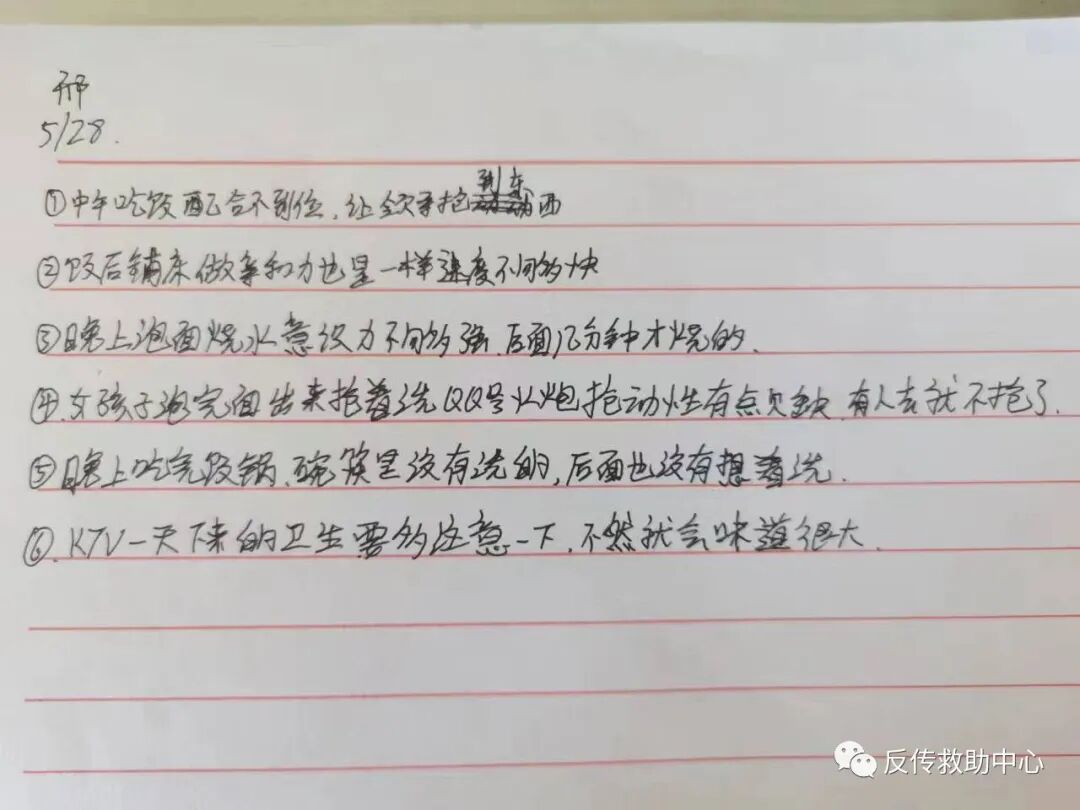 邢
5/28.
①中午吃饭配合不到位，让亲抢到东西
②饭后铺床做亲和力也是一样速度不间的快
③晚上泡面烧水意识力不间的强，后面几分钟才烧的.
④.女孩子泡完面出来抢着洗QQ号火炮抢动性有点欠缺.有人去我不抢了.
⑤晚上吃完饭锅.碗筷是没有洗的,后面也没有想着洗.
⑥.KTV一天下来的卫生要多注意一下.不然就会味道很大.
反传救助中心